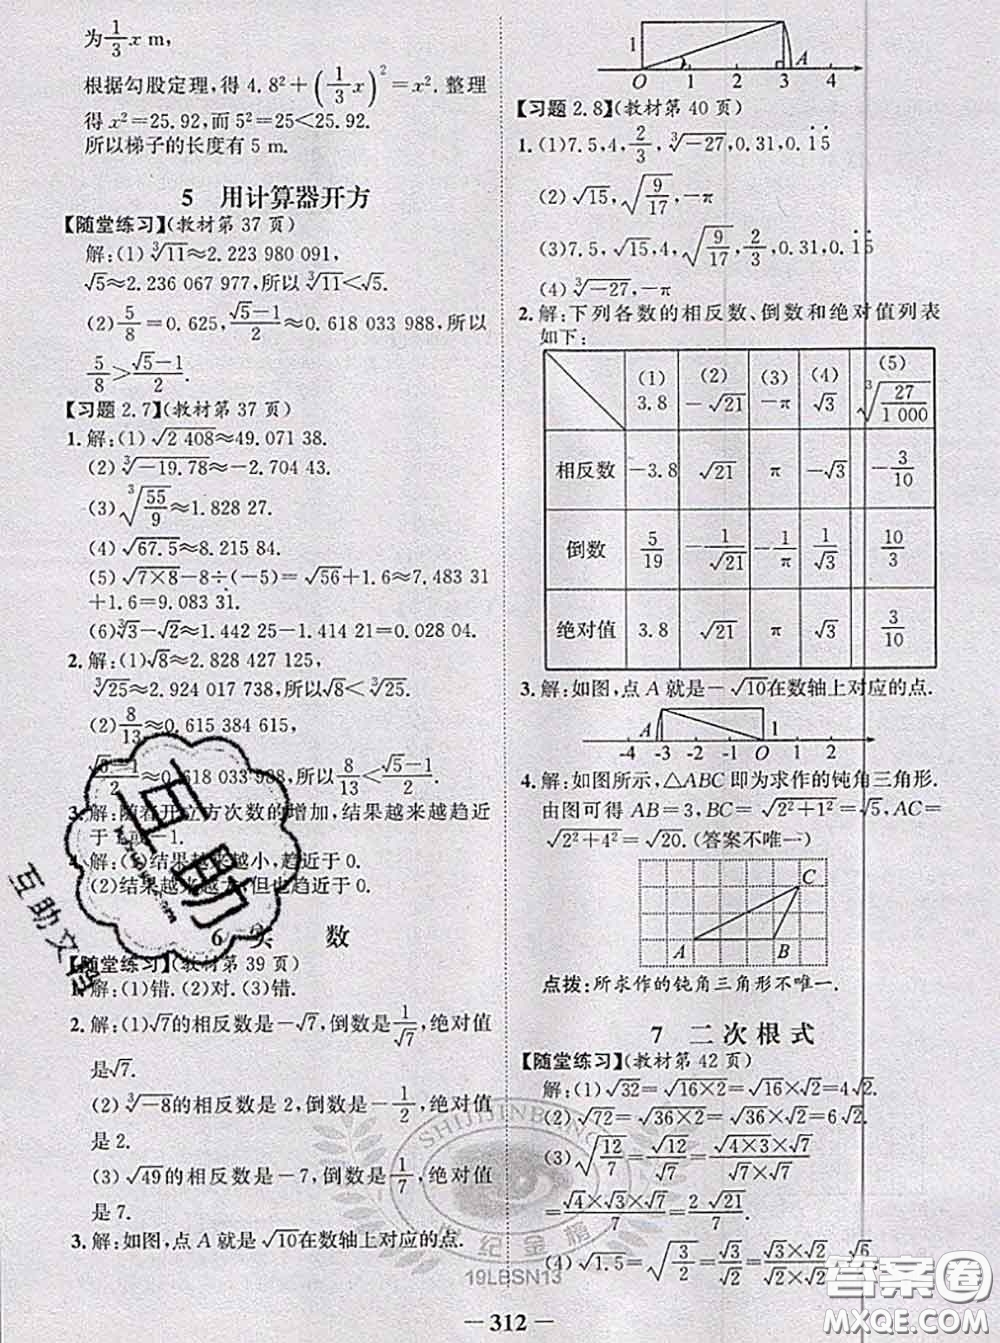 为 1/3 x m,
根据勾股定理,得 4.8²+(1/3 x)²=x². 整理
得 x²=25.92,而 5²=25<25.92.
所以梯子的长度有 5 m.
5 用计算器开方
【随堂练习】(教材第 37 页)
解:(1)∛11≈2.223 980 091,
√5≈2.236 067 977,所以∛11<√5.
(2) 5/8=0.625, (√5-1)/2≈0.618 033 988,所以
5/8>(√5-1)/2.
【习题 2.7】(教材第 37 页)
1. 解:(1)√2 408≈49.071 38.
(2)∛-19.78≈-2.704 43.
(3)∛(55/9)≈1.828 27.
(4)√67.5≈8.215 84.
(5)√(7×8)-8÷(-5)=√56+1.6≈7.483 31
+1.6=9.083 31.
(6)∛3-√2≈1.442 25-1.414 21=0.028 04.
2. 解:(1)√8≈2.828 427 125,
∛25≈2.924 017 738,所以√8<∛25.
(2) 8/13≈0.615 384 615,
(√5-1)/2≈0.618 033 988,所以 8/13<(√5-1)/2.
3. 解:随着开立方次数的增加,结果越来越趋近
于 1或-1.
4. 解:(1)结果越来越小,趋近于 0.
(2)结果越来越大,但也趋近于 0.
6 实 数
【随堂练习】(教材第 39 页)
1. 解:(1)错.(2)对.(3)错.
2. 解:(1)√7的相反数是-√7,倒数是 1/√7,绝对值
是√7.
(2)∛-8的相反数是 2,倒数是-1/2,绝对值
是 2.
(3)√49的相反数是-7,倒数是 1/7,绝对值
是 7.
3. 解:如图,点 A 就是√10在数轴上对应的点.
1
O 1 2 3 A 4
【习题 2.8】(教材第 40 页)
1. (1)7.5,4,2/3,∛-27,0.31,0.1̇5̇
(2)√15,√(9/17),-π
(3)7.5,√15,4,√(9/17),2/3,0.31,0.1̇5̇
(4)∛-27,-π
2. 解:下列各数的相反数、倒数和绝对值列表
如下:
(1) 3.8 (2) -√21 (3) -π (4) √3 (5) ∛(27/1 000)
相反数 -3.8 √21 π -√3 -3/10
倒数 5/19 -1/√21 -1/π 1/√3 10/3
绝对值 3.8 √21 π √3 3/10
3. 解:如图,点 A 就是-√10在数轴上对应的点.
A 1
-4 -3 -2 -1 O 1 2
4. 解:如图所示,△ABC 即为求作的钝角三角形.
由图可得 AB=3,BC=√(2²+1²)=√5,AC=
√(2²+4²)=√20.(答案不唯一)
C
A B
点拨:所求作的钝角三角形不唯一.
7 二次根式
【随堂练习】(教材第 42 页)
解:(1)√32=√(16×2)=√16×√2=4√2.
(2)√72=√(36×2)=√36×√2=6√2.
(3)√(12/7)=√12/√7=√(4×3×7)/√(7×7)
=(√4×√3×√7)/(√7×√7)=2√21/7.
(4)√1.5=√(3/2)=√3/√2=(√3×√2)/(√2×√2)=√6/2.
SHIJIJINBANG
世纪金榜
19LBSN13
— 312 —
互助
互助文
答案圈
MXQE.COM